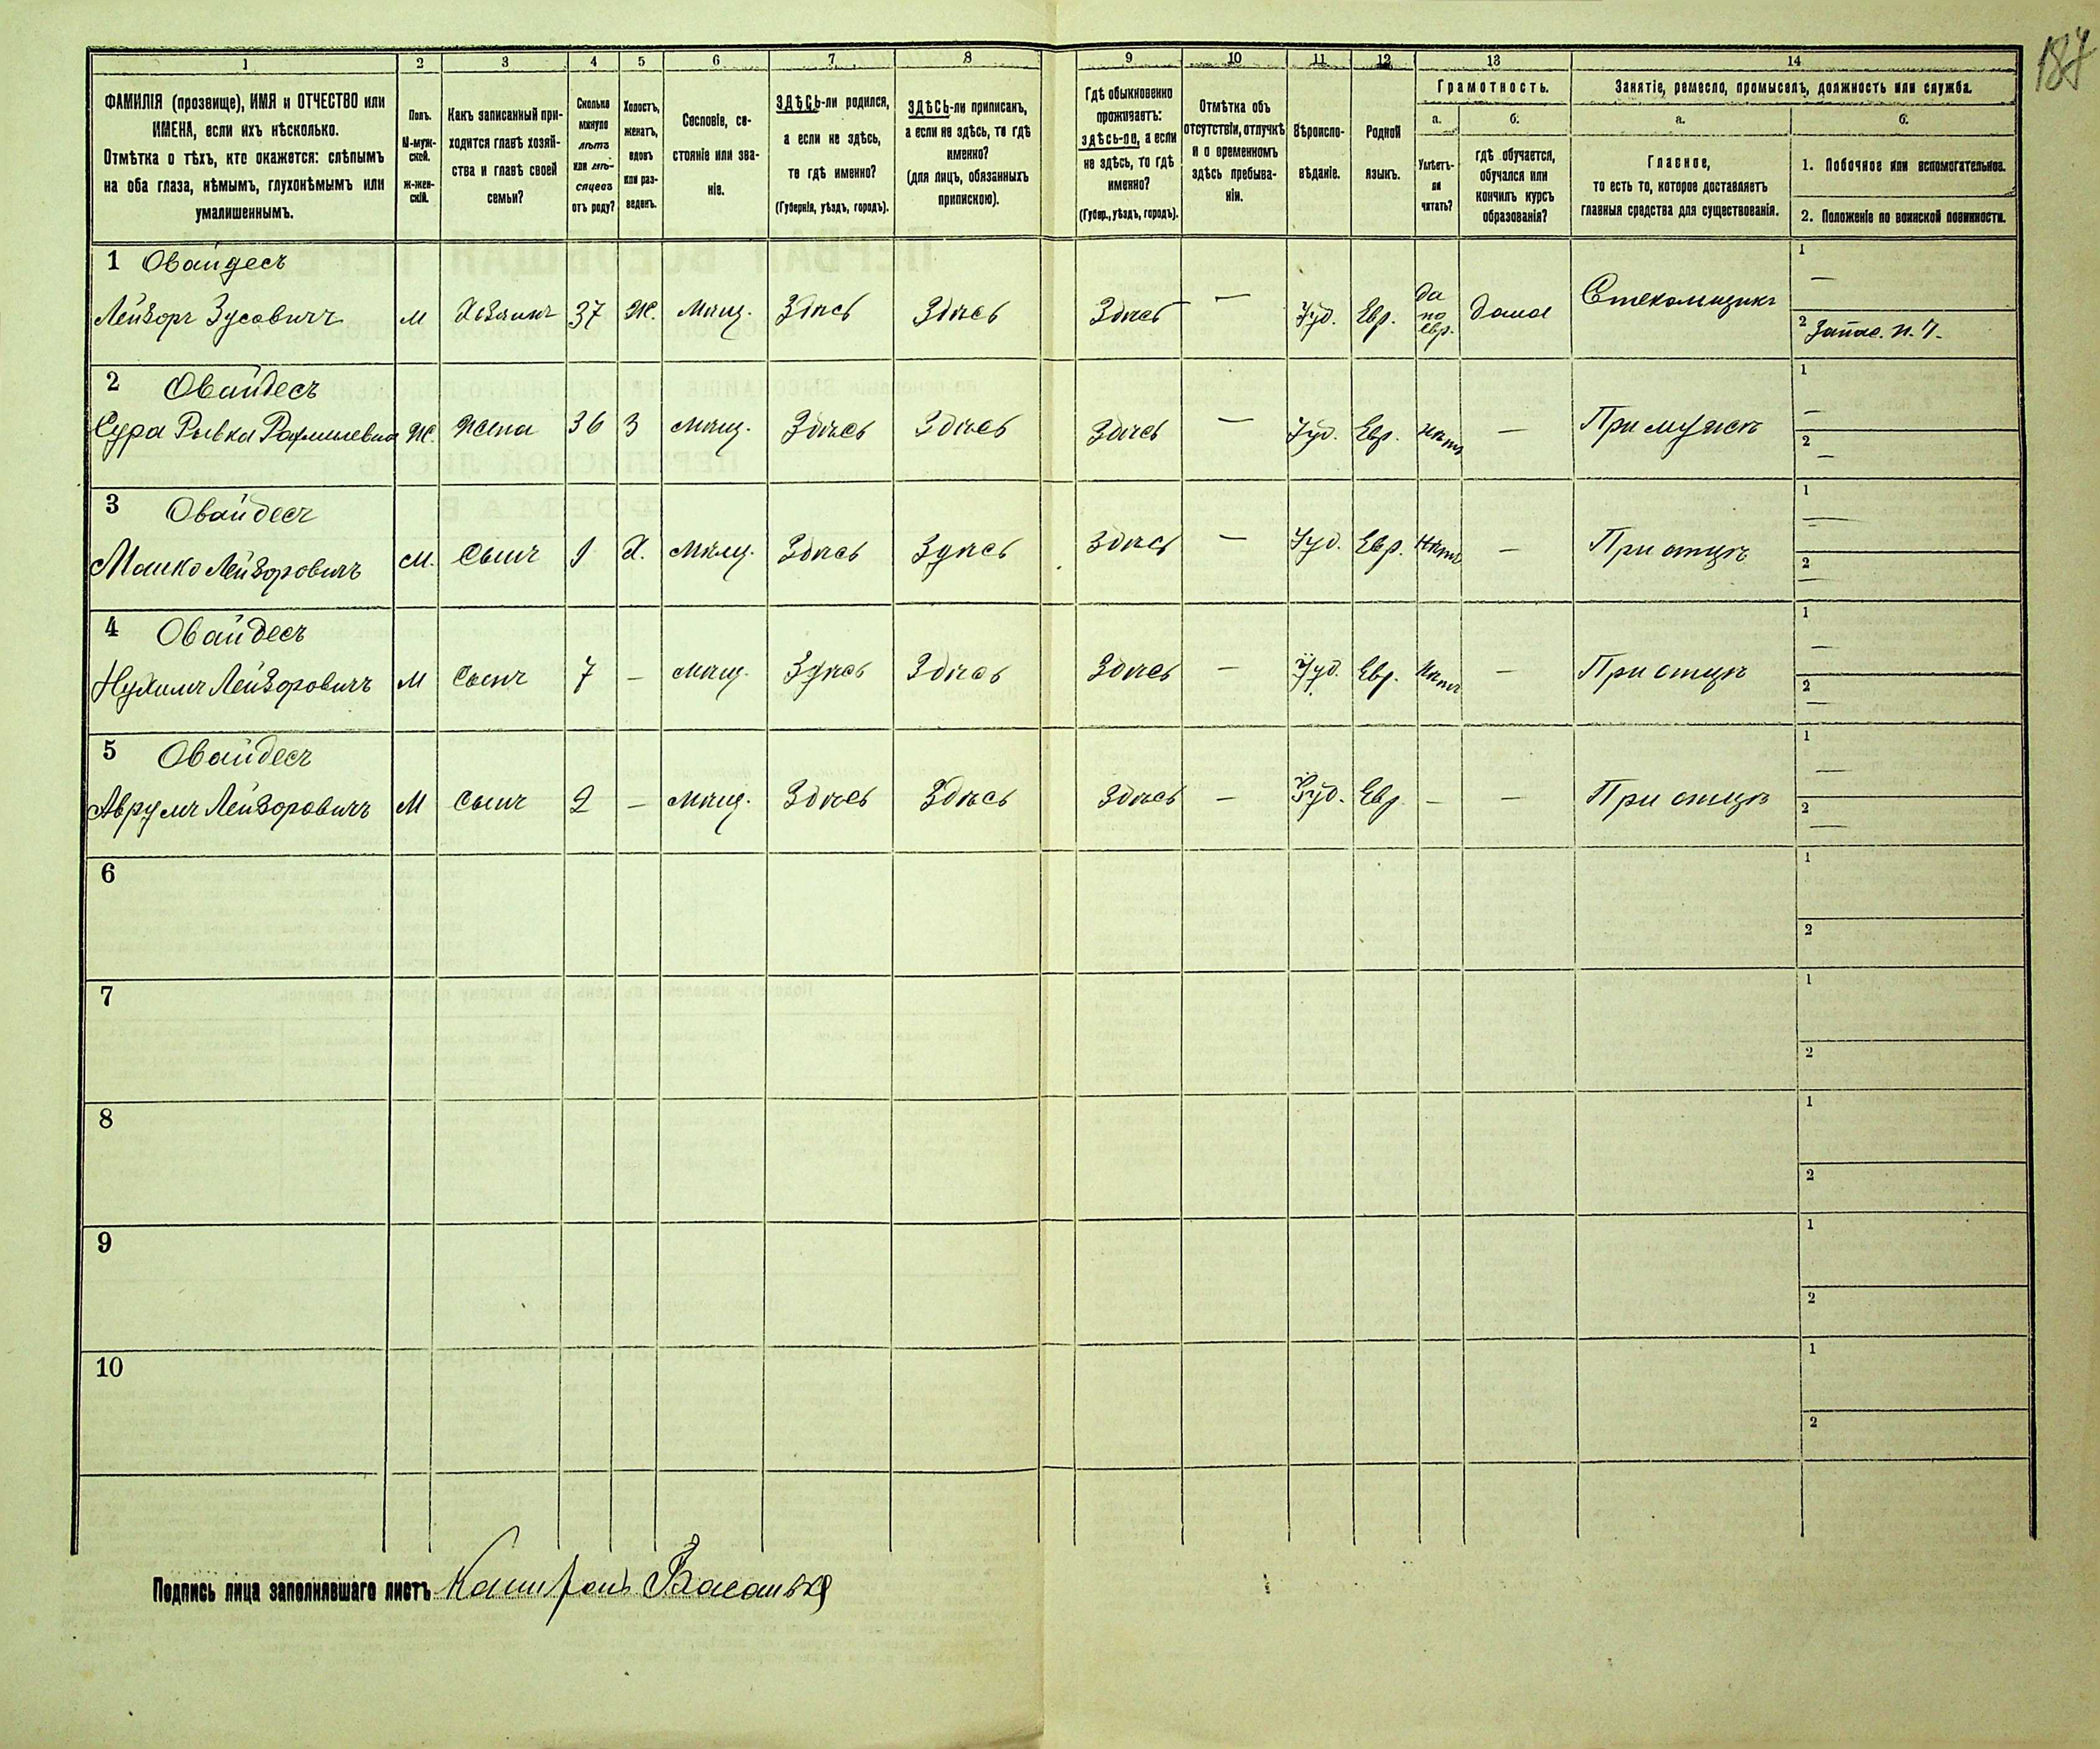 187
1 2 3 4 5 6 7 8 9 10 11 12 13 14
ФАМИЛІЯ (прозвище), ИМЯ и ОТЧЕСТВО или
ИМЕНА, если ихъ нѣсколько.
Отмѣтка о тѣхъ, кто окажется: слѣпымъ
на оба глаза, нѣмымъ, глухонѣмымъ или
умалишеннымъ.
Полъ.
М-муж-
ской.
ж-жен-
скій.
Какъ записанный при-
ходится главѣ хозяй-
ства и главѣ своей
семьи?
Сколько
минуло
лѣтъ
или мѣ-
сяцевъ
отъ роду?
Холостъ,
женатъ,
вдовъ
или раз-
веденъ.
Сословіе, со-
стояніе или зва-
ніе.
ЗДѢСЬ-ли родился,
а если не здѣсь,
то гдѣ именно?
(Губернія, уѣздъ, городъ).
ЗДѢСЬ-ли приписанъ,
а если не здѣсь, то гдѣ
именно?
(для лицъ, обязанныхъ
припискою).
Гдѣ обыкновенно
проживаетъ:
здѣсь-ли, а если
не здѣсь, то гдѣ
именно?
(Губер., уѣздъ, городъ).
Отмѣтка объ
отсутствіи, отлучкѣ
и о временномъ
здѣсь пребыва-
ніи.
Вѣроиспо-
вѣданіе.
Родной
языкъ.
Грамотность.
а.
Умѣетъ-
ли
читать?
б.
гдѣ обучается,
обучался или
кончилъ курсъ
образованія?
Занятіе, ремесло, промыселъ, должность или служба.
а.
Главное,
то есть то, которое доставляетъ
главныя средства для существованія.
б.
1. Побочное или вспомогательное.
2. Положеніе по воинской повинности.
1 Овайдесъ
Лейзоръ Зусовичъ м Хозяинъ 37 Ж. Мѣщ. Здѣсь Здѣсь Здѣсь — Іуд. Евр. да по евр. дома Стекольщикъ 1 — 2 Запас. н. ч.
2 Овайдесъ
Сура Рывка Ж. Жена 36 З Мѣщ. Здѣсь Здѣсь Здѣсь — Іуд. Евр. Нѣтъ — При мужѣ 1 — 2 —
3 Овайдесъ
Мошко Лейзоровичъ М. Сынъ 9 Х. Мѣщ. Здѣсь Здѣсь Здѣсь — Іуд. Евр. Нѣтъ — При отцѣ 1 — 2 —
4 Овайдесъ
Нухимъ Лейзоровичъ М Сынъ 7 — Мѣщ. Здѣсь Здѣсь Здѣсь — Іуд. Евр. Нѣтъ — При отцѣ 1 — 2 —
5 Овайдесъ
Аврумъ Лейзоровичъ М Сынъ 2 — Мѣщ. Здѣсь Здѣсь Здѣсь — Іуд. Евр — — При отцѣ 1 — 2 —
6 1 2
7 1 2
8 1 2
9 1 2
10 1 2
Подпись лица заполнявшаго листъ